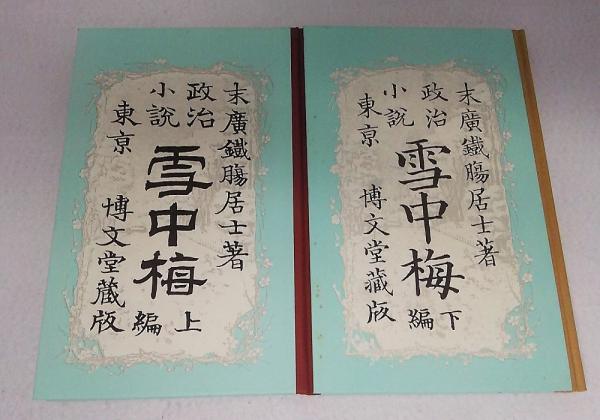 末廣鐵膓居士著
政治
小説
雪中梅
上編
東京
博文堂蔵版
末廣鐵膓居士著
政治
小説
雪中梅
下編
東京
博文堂蔵版